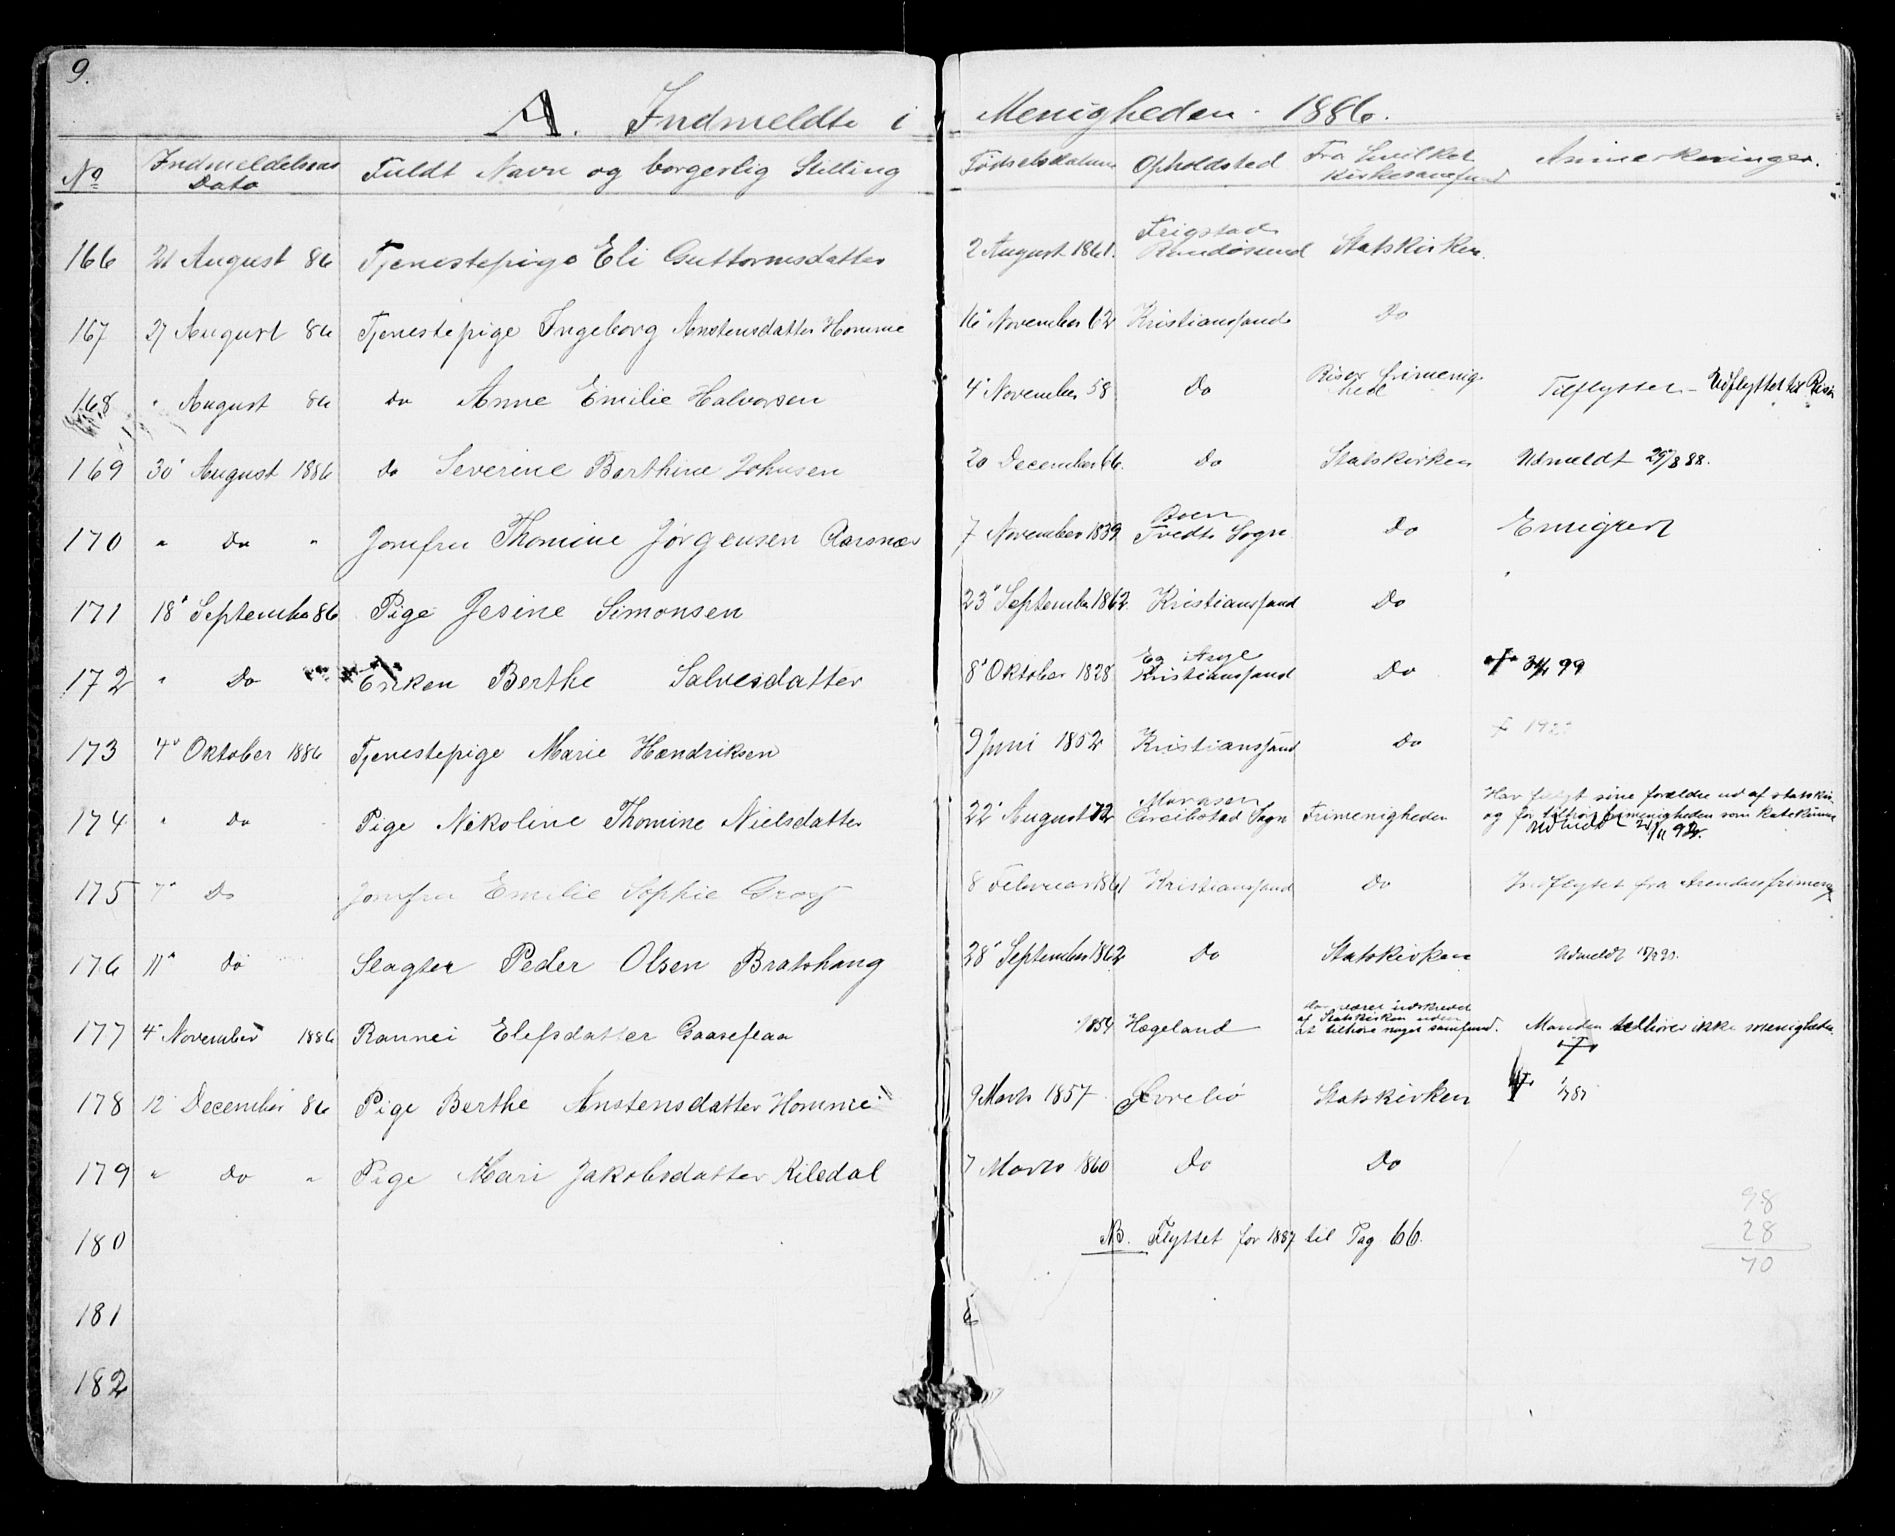 9.
A. Indmeldte i Menigheden. 1886.
No Indmeldelses Dato Fuldt Navn og borgerlig Stilling Fødselsdatum Opholdsted Fra hvilket Kirkesamfund Anmærkninger.
166 21 August 86 Tjenestepige Eli Guttormsdatter 2 August 1861. Frigstad Randøsund Statskirken.
167 27 August 86 Tjenestepige Ingeborg Anstensdatter Homme 16' November 62 Kristianssand Do
168 " August 86 Do Anne Emilie Halvorsen 4' November 58 Do Risør frimenighed Tilflyttet - Udflyttet til Risør
169 30' August 1886 Do Severine Berthine Johnsen 20 December 66. Do Statskirken Udmeldt 29/8 88.
170 " Do " Jomfru Thomine Jørgensen Aarsnes 7 November 1839 Boen Tvedt Sogn Do Emigreret
171 18' September 86 Pige Jesine Simonsen 23" September 1862. Kristianssand Do
172 " Do Enken Berthe Salvesdatter 8' Oktober 1828 Kristianssand Do 99
173 4' Oktober 1886 Tjenestepige Marie Hendriksen 9 Juni 1852 Kristianssand Do
174 " Do Pige Nikoline Thomine Nielsdatter 22' August 72 Sogn Frimenigheden Har fulgt sine forældre ud af statskir.
og frimenigheden som katekumen
Udmeldt 92.
175 7" Do Jomfru Emilie Sophie Grøv 8 Februar 1861 Kristianssand Do Indflyttet fra Arendals frimenig
176 11" Do Slagter Peder Olsen Bratshaug 28' September 1862 Do Statskirken Udmeldt
177 4' November 1886 Rannei Elefsdatter Gaaseflaa 1854 Hægeland Har været udskrevet
af Statskirken uden
at tilhøre noget samfund. Manden tilhører ikke menigheden
178 12 December 86 Pige Berthe Anstensdatter Homme 9 Marts 1857 Øvrebø Statskirken
179 " Do " Pige Mari Jakobsdatter Kiledal 7 Marts 1860 Do Do
98
180 NB. Flyttet for 1887 til Pag 66. 28
70
181
182